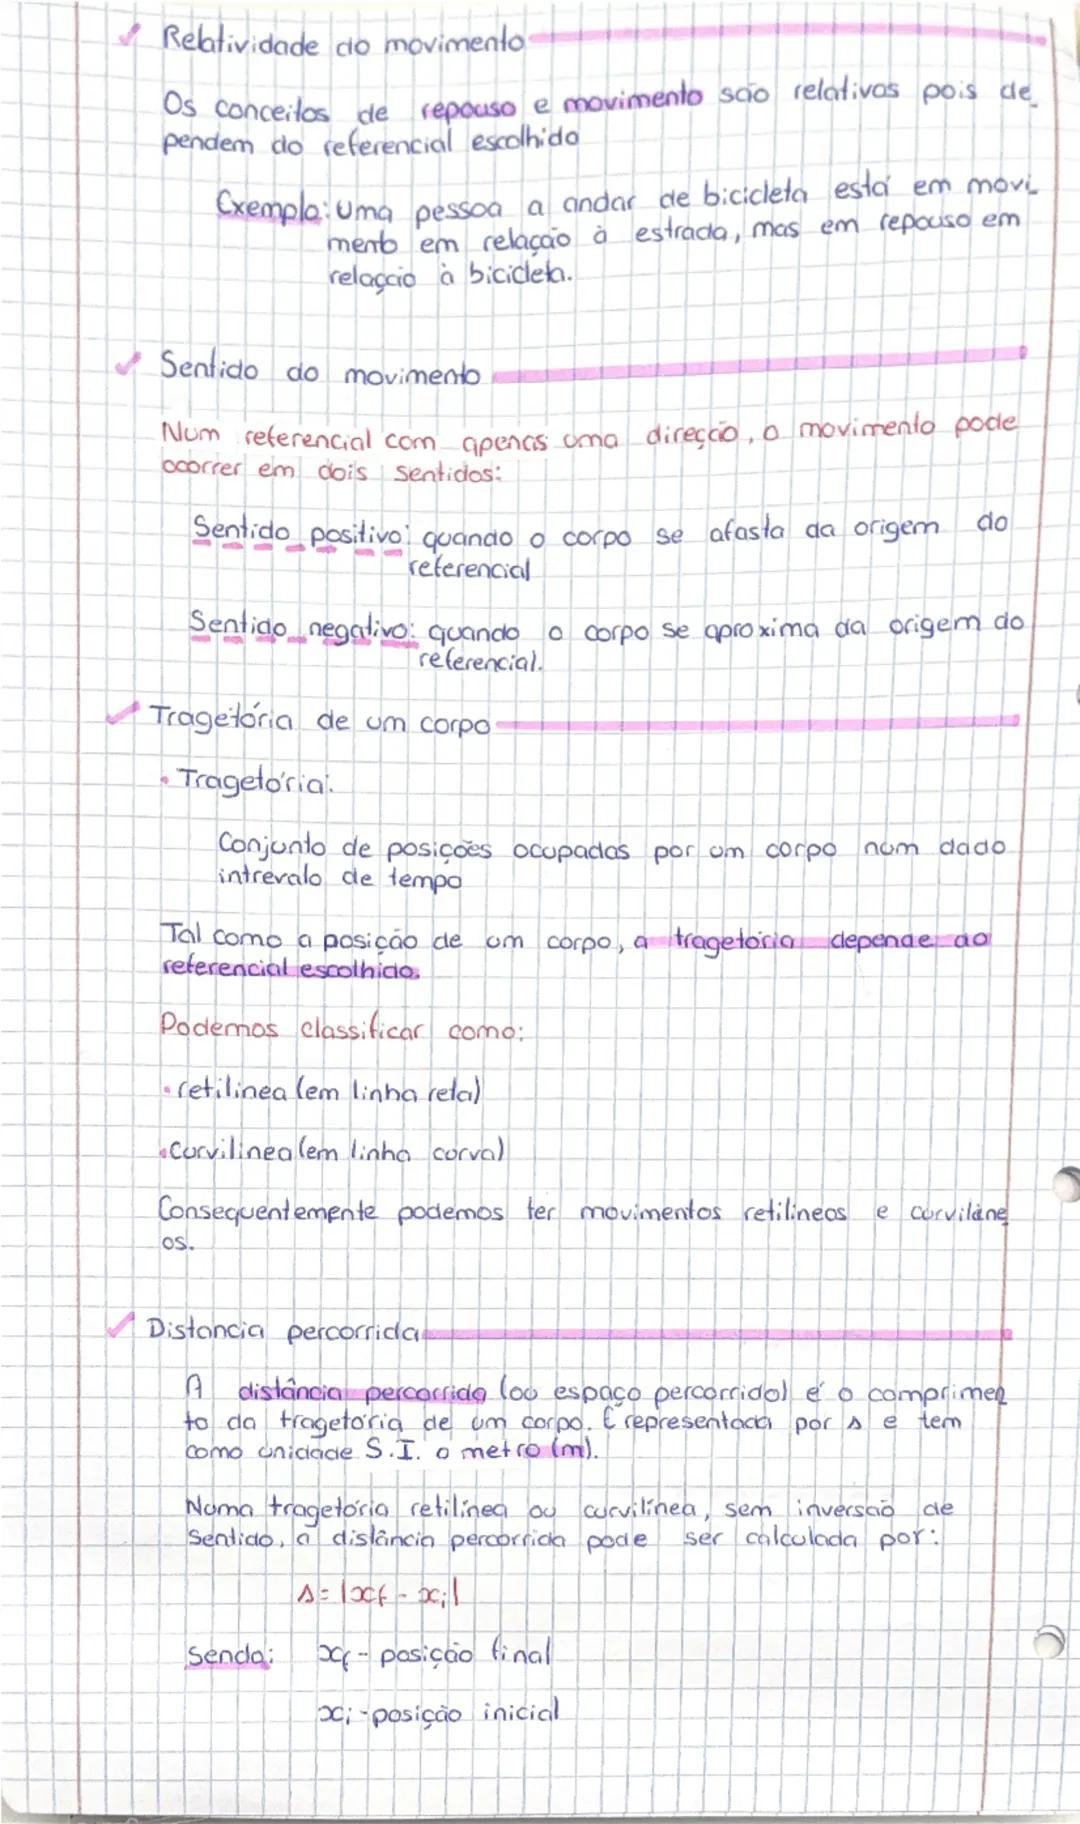 Relatividade do movimento
Os conceitos de repouso e movimento são relativos pois de_
pendem do referencial escolhido
Exemplo: Uma pessoa a andar de bicicleta está em movi_
mento em relação à estrada, mas em repouso em
relação à bicicleta.
Sentido do movimento
Num referencial com apenas uma direção, o movimento pode
ocorrer em dois sentidos:
Sentido positivo: quando o corpo se afasta da origem do
referencial
Sentido negativo: quando o corpo se aproxima da origem do
referencial.
Tragetória de um corpo
• Tragetória:
Conjunto de posições ocupadas por um corpo num dado
intrevalo de tempo
Tal como a posição de um corpo, a tragetória depende do
referencial escolhido.
Podemos classificar como:
• retilinea (em linha reta)
• Curvilinea (em linha curva)
Consequentemente podemos ter movimentos retilineos e curviláne
os.
Distancia percorrida
A distância percorrida (ou espaço percorrido) é o comprimen_
to da tragetória de um corpo. É representada por s e tem
como unidade S.I. o metro (m).
Numa tragetória retilínea ou curvilínea, sem inversão de
Sentido, a distância percorrida pode ser calculada por:
s = |xf - xi|
Sendo: xf - posição final
xi - posição inicial